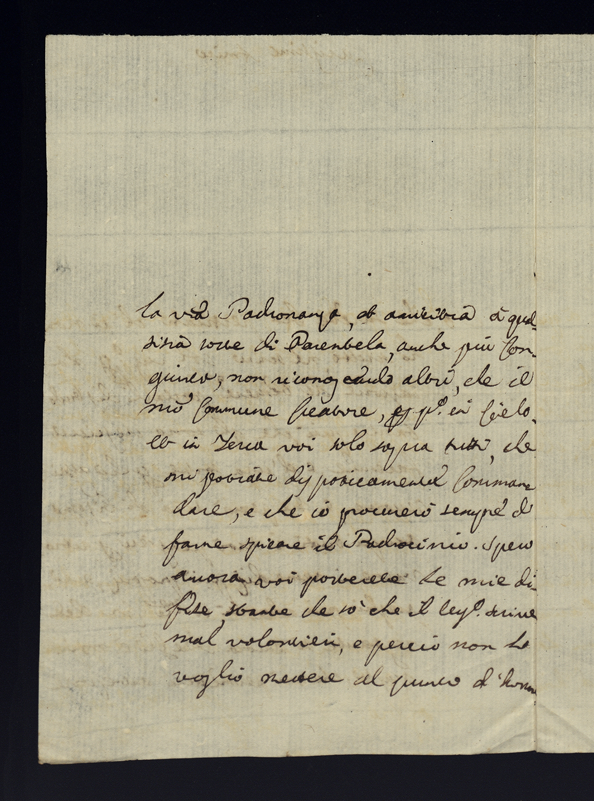 la vra Padronanza, et amicitia à qual-
sisia sorte di Parentela, anche più con-
giunta, non riconoscendo altri, che il
nro Commune Creatore, pº. in Cielo
et in Terra voi solo sopra tutti, che
mi potiate dispoticamente Comman
dare, e che io procurerò sempre di
farne spicare il Padrocinio. Spero
ancora voi porterete le mie di
fese, stante che sò che il scrive
mal volontieri, e perciò non lo
voglio mettere al punto d'